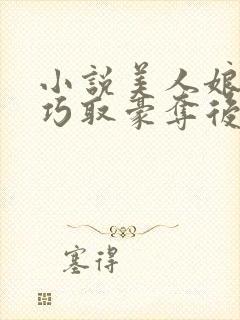 小說美人娘
巧取豪奪後
塞得